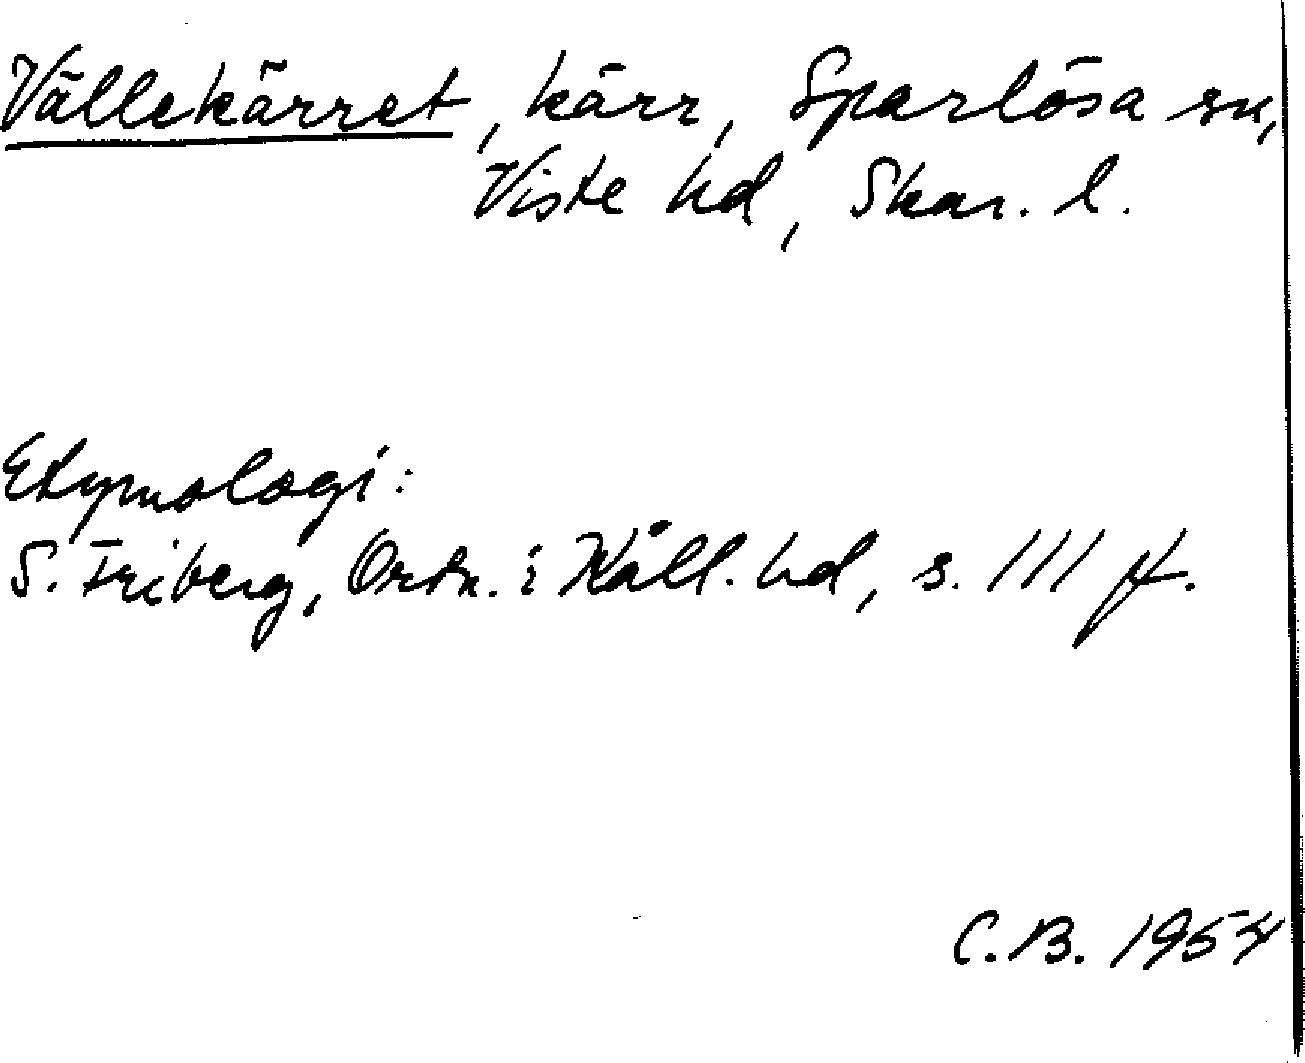 Vällekärret, kärr, Sparlösa sn,
Viste hd, Skar. l.
Etymologi:
S. Friberg, Ortn. i Kåll. hd, s. 111 f.
C.B. 1954